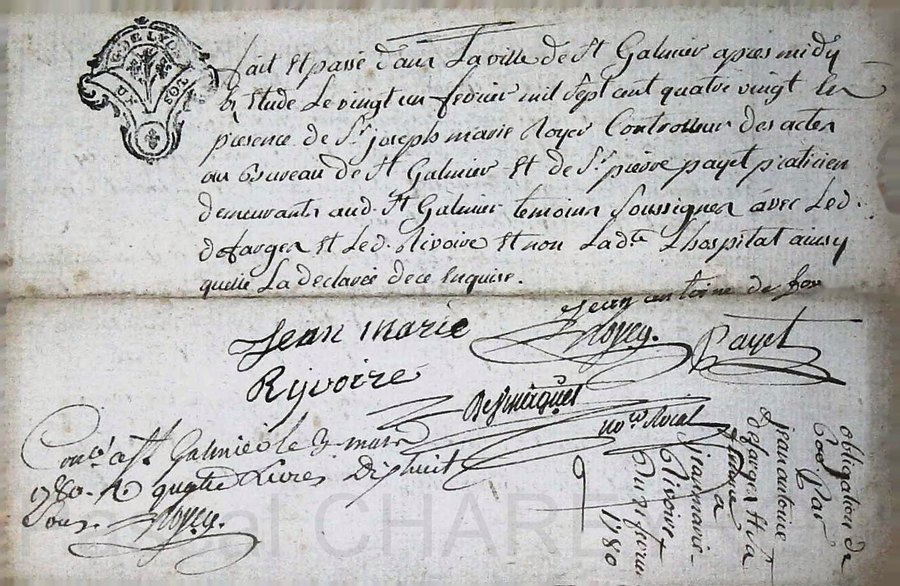 G. DE LYON
UN SOL
fait et passé dans la ville de St Galmier apres midy
Et Etude Le vingt un fevrier mil sept cent quatre vingt En
presence de Sr. joseph marie Royer Controlleur des actes
au Bureau de St Galmier Et de Sr. pierre payet praticien
demeurants aud. St Galmier temoins soussignes avec Led.
defarges Et Led. Rivoire Et non Ladte. Lhospital ainsy
quelle La declaré de ce Enquise.
jean antoine de far
jean marie
Rijvoire
Royer.
Payet
no.re Royal
Conlé. a St. Galmier le 3. mars
1780. R. quatre Livres Dixhuit
Sous. Royer.
obligation de
Par
jean antoine
defarges Et sa
femme
a
jean marie
Rivoire
Du 21 fevrier
1780
Pascal CHAREYRE